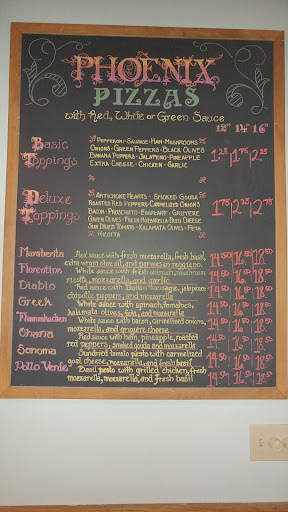 PHOENIX
PIZZAS
with Red, White or Green Sauce
12" 14" 16"
Basic
Toppings
Pepperoni - Sausage - Ham - Mushrooms
Onions - Green Peppers - Black Olives
Banana Peppers - Jalapeno - Pineapple
Extra Cheese - Chicken - Garlic
1.25 | 1.75 | 2.25
Deluxe
Toppings
Artichoke Hearts - Smoked Gouda
Roasted Red Peppers - Carmelized Onions
Bacon - Proscuitto - Eggplant - Gruyere
Green Olives - Fresh Mozzarella - Bleu Cheese
Sun Dried Tomato - Kalamata Olives - Feta
Ricotta
1.75 | 2.25 | 2.75
Margherita Red sauce with fresh mozzarella, fresh basil, 14.50 | 16.50 | 18.50
extra virgin olive oil, and parmesan reggiano
Florentine White sauce with fresh spinach, mushroom 14.50 | 16.50 | 18.50
ricotta, mozzarella, and garlic
Diablo Red sauce with sausage, jalapenos, 14.50 | 16.50 | 18.50
chipotle peppers, and mozzarella
Greek White sauce with spinach, tomatoes, 14.50 | 16.50 | 18.50
kalamata olives, feta, and mozzarella
Flammkuchen White sauce with bacon, carmelized onions, 14.50 | 16.50 | 18.50
mozzarella, and gruyere cheese
Ohana Red sauce with ham, pineapple, roasted 14.50 | 16.50 | 18.50
red peppers, smoked gouda and mozzarella
Sonoma Sundried tomato pesto with carmelized 14.50 | 16.50 | 18.50
goat cheese, mozzarella, and fresh basil
Pollo Verde Basil pesto with grilled chicken, fresh 14.50 | 16.50 | 18.50
mozzarella, mozzarella, and fresh basil